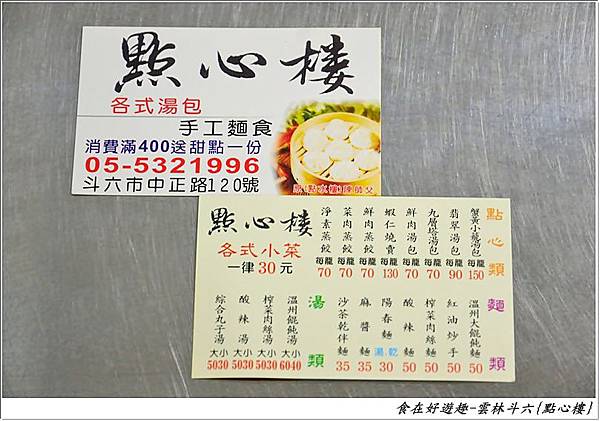 點心樓
各式湯包
手工麵食
消費滿400送甜點一份
05-5321996
斗六市中正路120號
原(點水樓)陳師父
點心樓
各式小菜
一律30元
點心類
蟹黃小籠湯包 每籠 150
翡翠湯包 每籠 90
九層塔湯包 每籠 70
鮮肉湯包 每籠 70
蝦仁燒賣 每籠 130
鮮肉蒸餃 每籠 70
菜肉蒸餃 每籠 70
淨素蒸餃 每籠 70
麵類
溫州大餛飩麵 50
紅油炒手 50
榨菜肉絲麵 50
酸辣麵 50
陽春麵 湯.乾 30
麻醬麵 35
沙茶乾伴麵 35
湯類
溫州餛飩湯 大小 6040
榨菜肉絲湯 大小 5030
酸辣湯 大小 5030
綜合丸子湯 大小 5030
食在好遊趣-雲林斗六{點心樓}